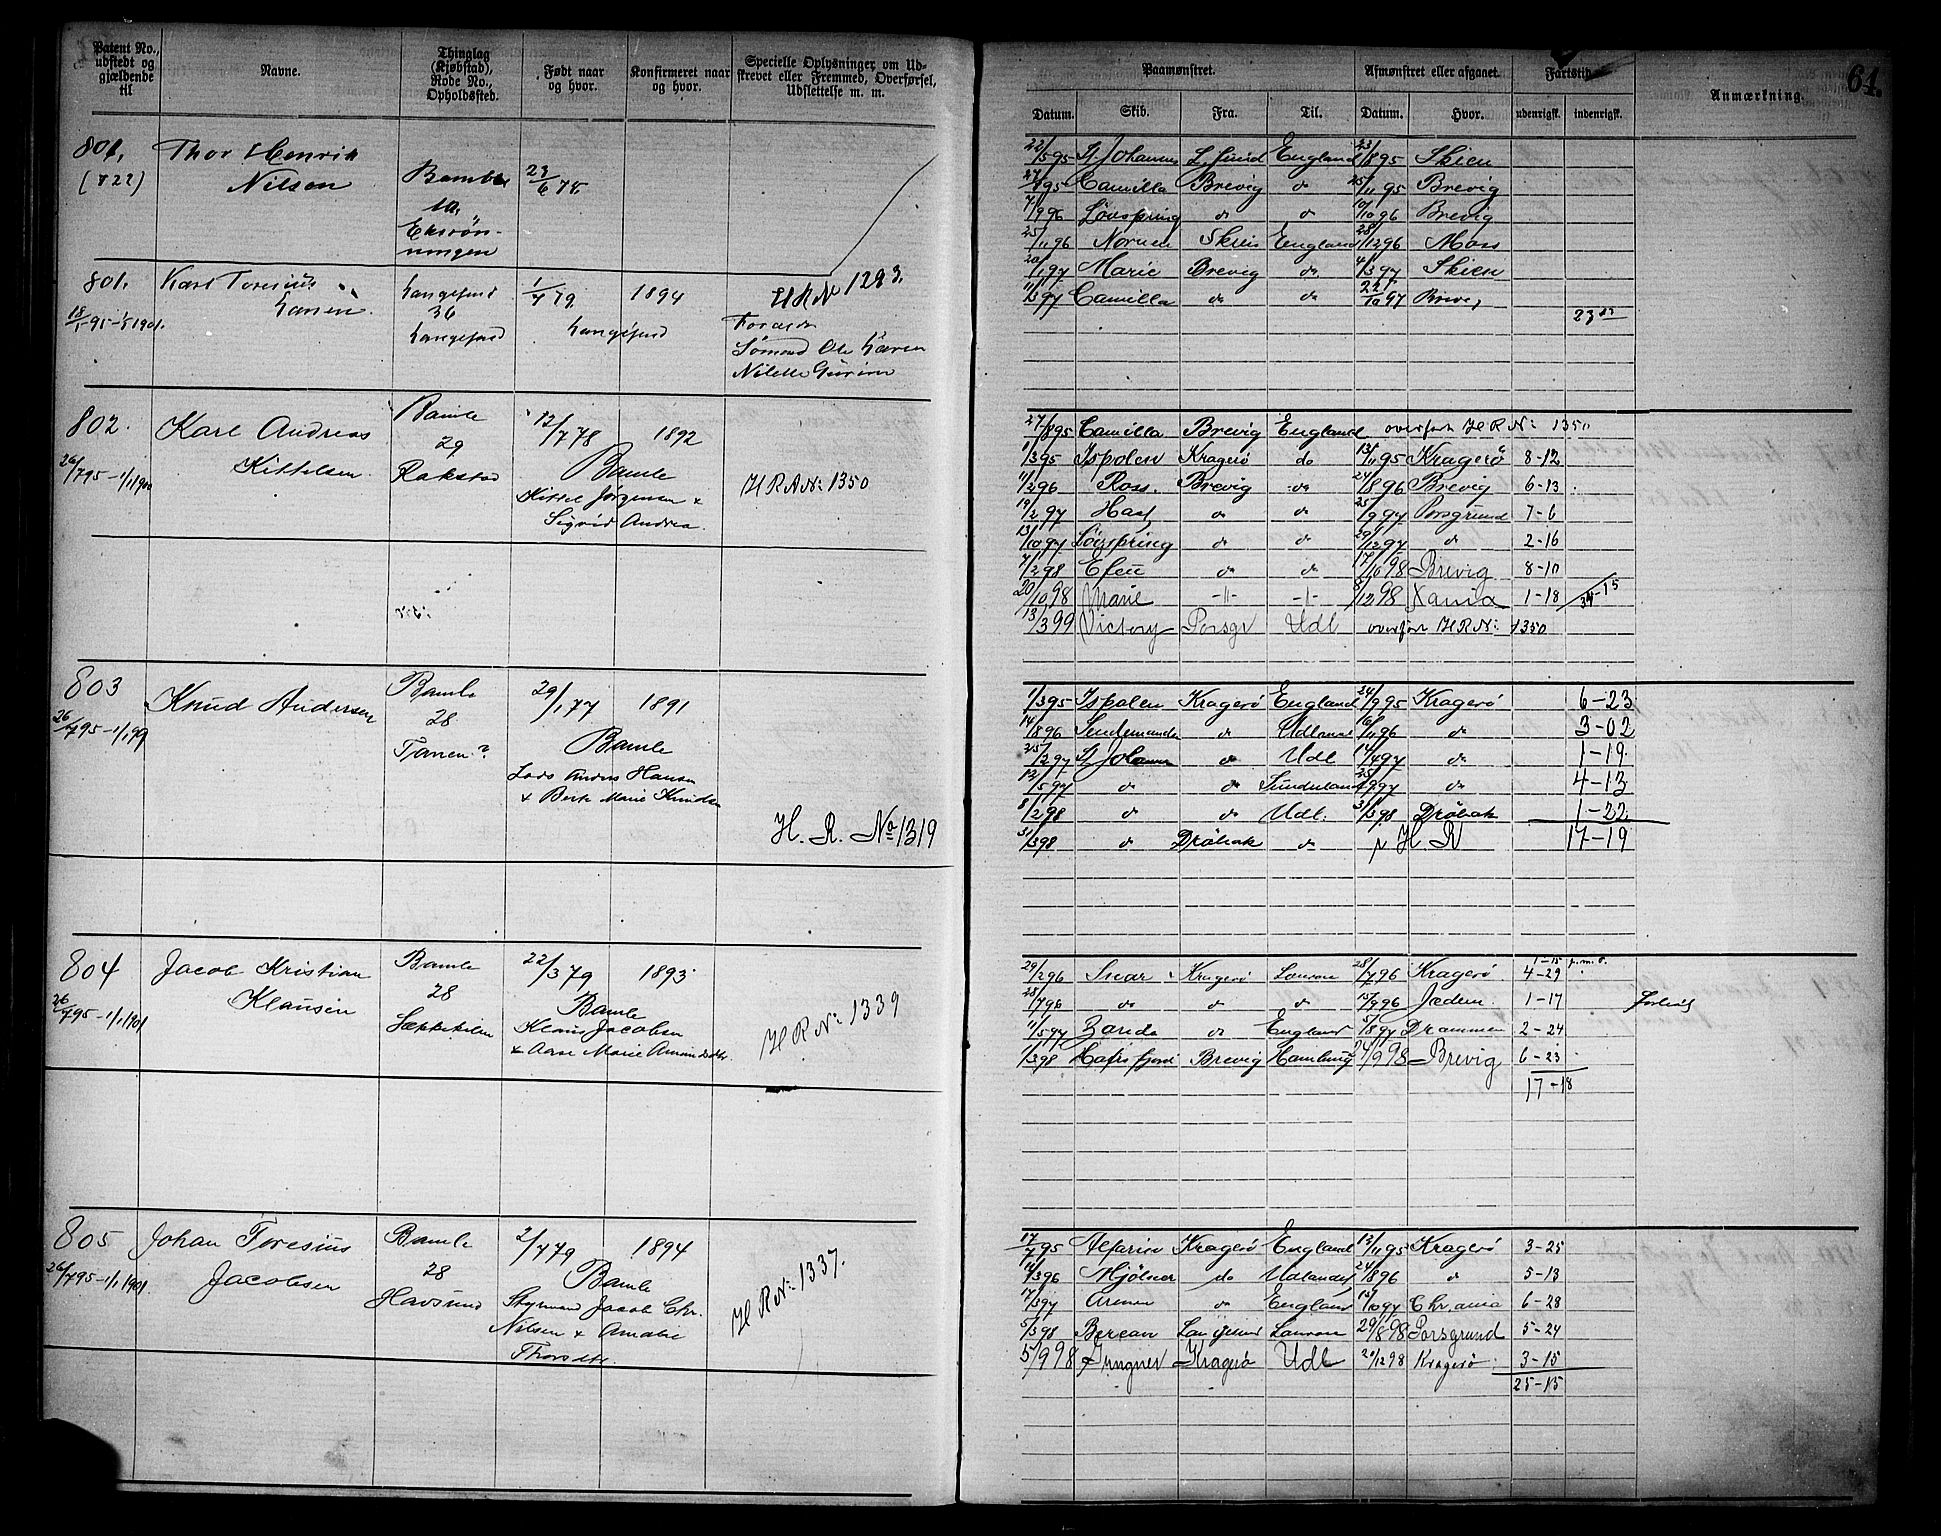 Patent No.,
udstedt og
gjældende
til
Navne.
Thinglag
(Kjøbstad),
Rode No.,
Opholdssted.
Født naar
og hvor.
Konfirmeret naar
og hvor.
Specielle Oplysninger om Ud-
skrevet eller Fremmed, Overførsel,
Udslettelse m. m.
Thor Henrik
Nilsen
23/6 78
801.
1894
H R No 1283.
Langesund
36
Langesund
Langesund
802.
26/7 95 - 1/1 1900
Karl Andreas
Kittelsen
Bamle
29
Rakstad
12/7 78
1892
Bamle
Kittel Jørgensen &
Sigrid Andrea.
H R A No: 1350
803
26/7 95 - 1/1 99
Knud Andersen
Bamle
28
Tanen?
29/1 77
1891
Bamle
Lods Anders Hansen
& Berte Marie Knudsen
H. R. No 1319
804
26/7 95 - 1/1 1901
Jacob Kristian
Klausen
Bamle
28
22/3 79
1893
Bamle
Klaus Jacobsen
H R No: 1339
805
26/7 95 - 1/1 1901
Johan Toresius
Jacobsen
Bamle
28
Havsund
2/7 79
1894
Bamle
Styrmand Jacob Chr.
Nilsen & Amalie
Thorsdtr.
H R No: 1337.
64.
Paamønstret.
Afmønstret eller afgaaet.
Fartstid
Anmærkning.
Datum.
Skib.
Fra.
Til.
Datum.
Hvor.
udenrigsk.
indenrigsk.
22/5 95 St Johannes L. Sund England 23/8 95 Skien
Camilla Brevig do 25/11 95 Brevig
7/9 96 Løvspring do do 10/10 96 Brevig
25/11 96 Nornen Skien England 28/12 96 Moss
20/1 97 Marie Brevig do 4/3 97 Skien
Camilla do do 22/10 97 Brevig
27/8 95 Camilla Brevig England overført H R No: 1350
1/3 95 Ispolen Kragerø do 13/11 95 Kragerø 8-12
11/2 96 Ross. Brevig do 21/8 96 Brevig 6-13
19/2 97 do do 25/9 97 Porsgrund 7-6
13/10 97 Løvspring do do 29/12 97 do 2-16
7/2 98 do do 17/10 98 Brevig 8-10
20/10 98 Marie -"- -"- 12 98 Xania 1-18 34-15
13/3 99 Victory Porsgr Udl overført H R No: 1350
1/3 95 Ispolen Kragerø England 24/9 95 Kragerø 6-23
14/8 96 do Udlandet 16/11 96 do 3-02
25/2 97 St Johannes do Udl 14/4 97 do 1-19
12/5 97 do do Sunderland 25/9 97 do 4-13
8/2 98 do do Udl. 31/3 98 Drøbak 1-22
31/3 98 do Drøbak do H. R 17-19
1-15 f.m.t.
29/2 96 Snar Kragerø London 28/7 96 Kragerø 4-29
28/7 96 do do do 15/9 96 Jæderen. 1-17 Forlist
11/5 97 do England 5/8 97 Drammen 2-24
1/3 98 Hafrsfjord Brevig Hamburg 24/9 98 Brevig 6-23
17-18
17/7 95 Kragerø England 13/11 95 Kragerø 3-25
14/3 96 Mjølner do Udlandet 24/8 96 do 5-13
17/3 97 do England 15/10 97 Chr.ania 6-28
5/3 98 Langesund London 29/8 98 Porsgrund 5-24
5/9 98 Kragerø Udl 20/12 98 Kragerø 3-15
25-15